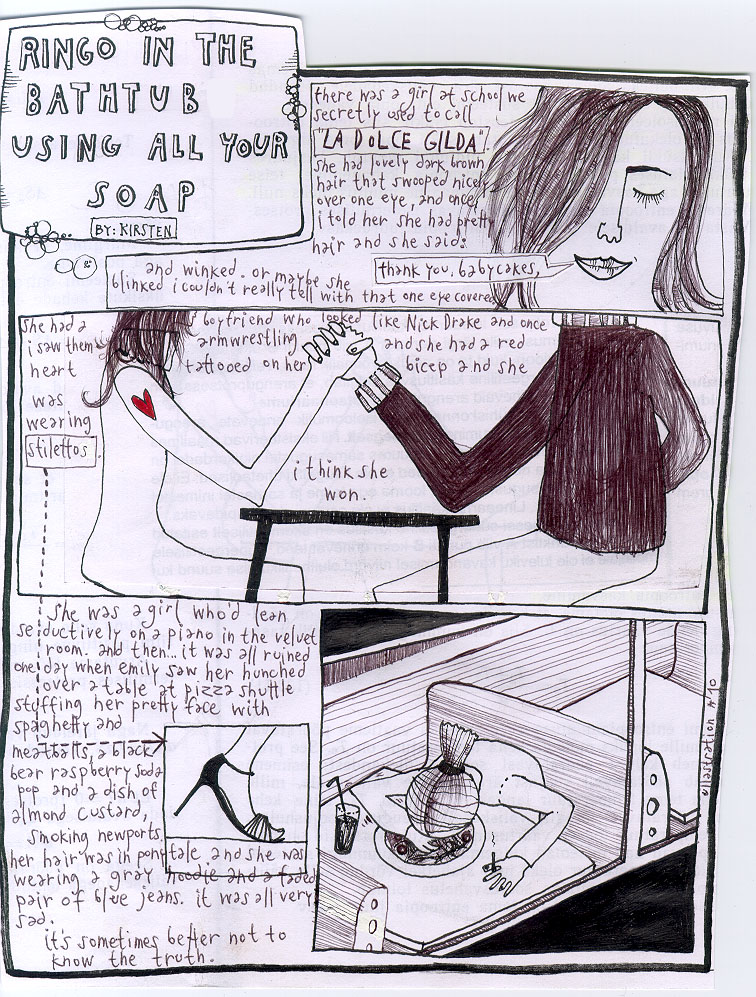 RINGO IN THE
BATHTUB
USING ALL YOUR
SOAP
BY: KIRSTEN
there was a girl at school we
secretly used to call
"LA DOLCE GILDA".
she had lovely dark brown
hair that swooped nicely
over one eye, and once
i told her she had pretty
hair and she said:
thank you, babycakes,
and winked. or maybe she
blinked i couldn't really tell with that one eye covered
she had a boyfriend who looked like Nick Drake and once
i saw them armwrestling and she had a red
heart tattooed on her bicep and she
was
wearing
stilettos.
i think she
won.
she was a girl who'd lean
seductively on a piano in the velvet
room. and then... it was all ruined
one day when emily saw her hunched
over a table at pizza shuttle
stuffing her pretty face with
spaghetty and
meatballs, a black
bear raspberry soda
pop and a dish of
almond custard,
smoking newports
her hair was in ponytale and she was
wearing a gray hoodie and a faded
pair of blue jeans. it was all very
sad.
it's sometimes better not to
know the truth.